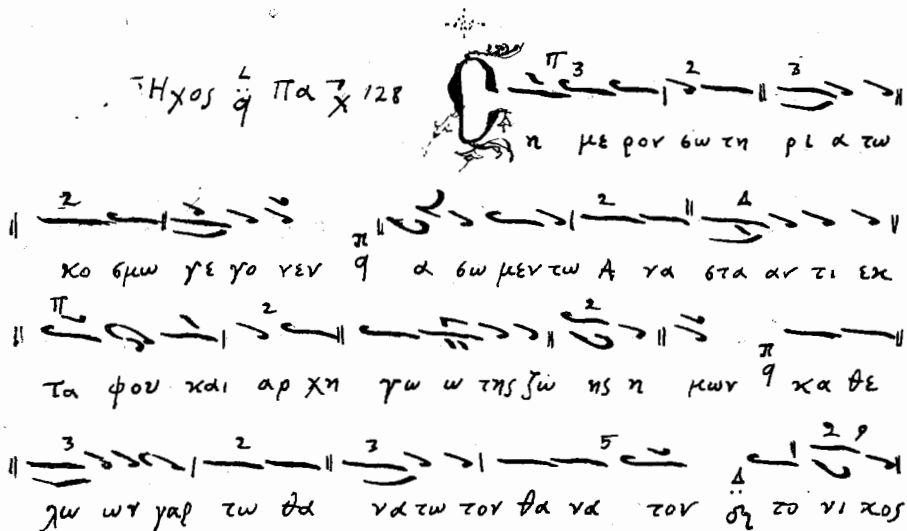 Ἦχος q̈ Πα χ 128 Σ η με ρον σω τη ρι α τω
κο σμω γε γο νεν π q α σω μεν τω Α να στα αν τι εκ
τα φου και αρ χη γω ω της ζω ης η μων π q κα θε
λω ων γαρ τω θα να τω τον θα να τον Δ το νι κος